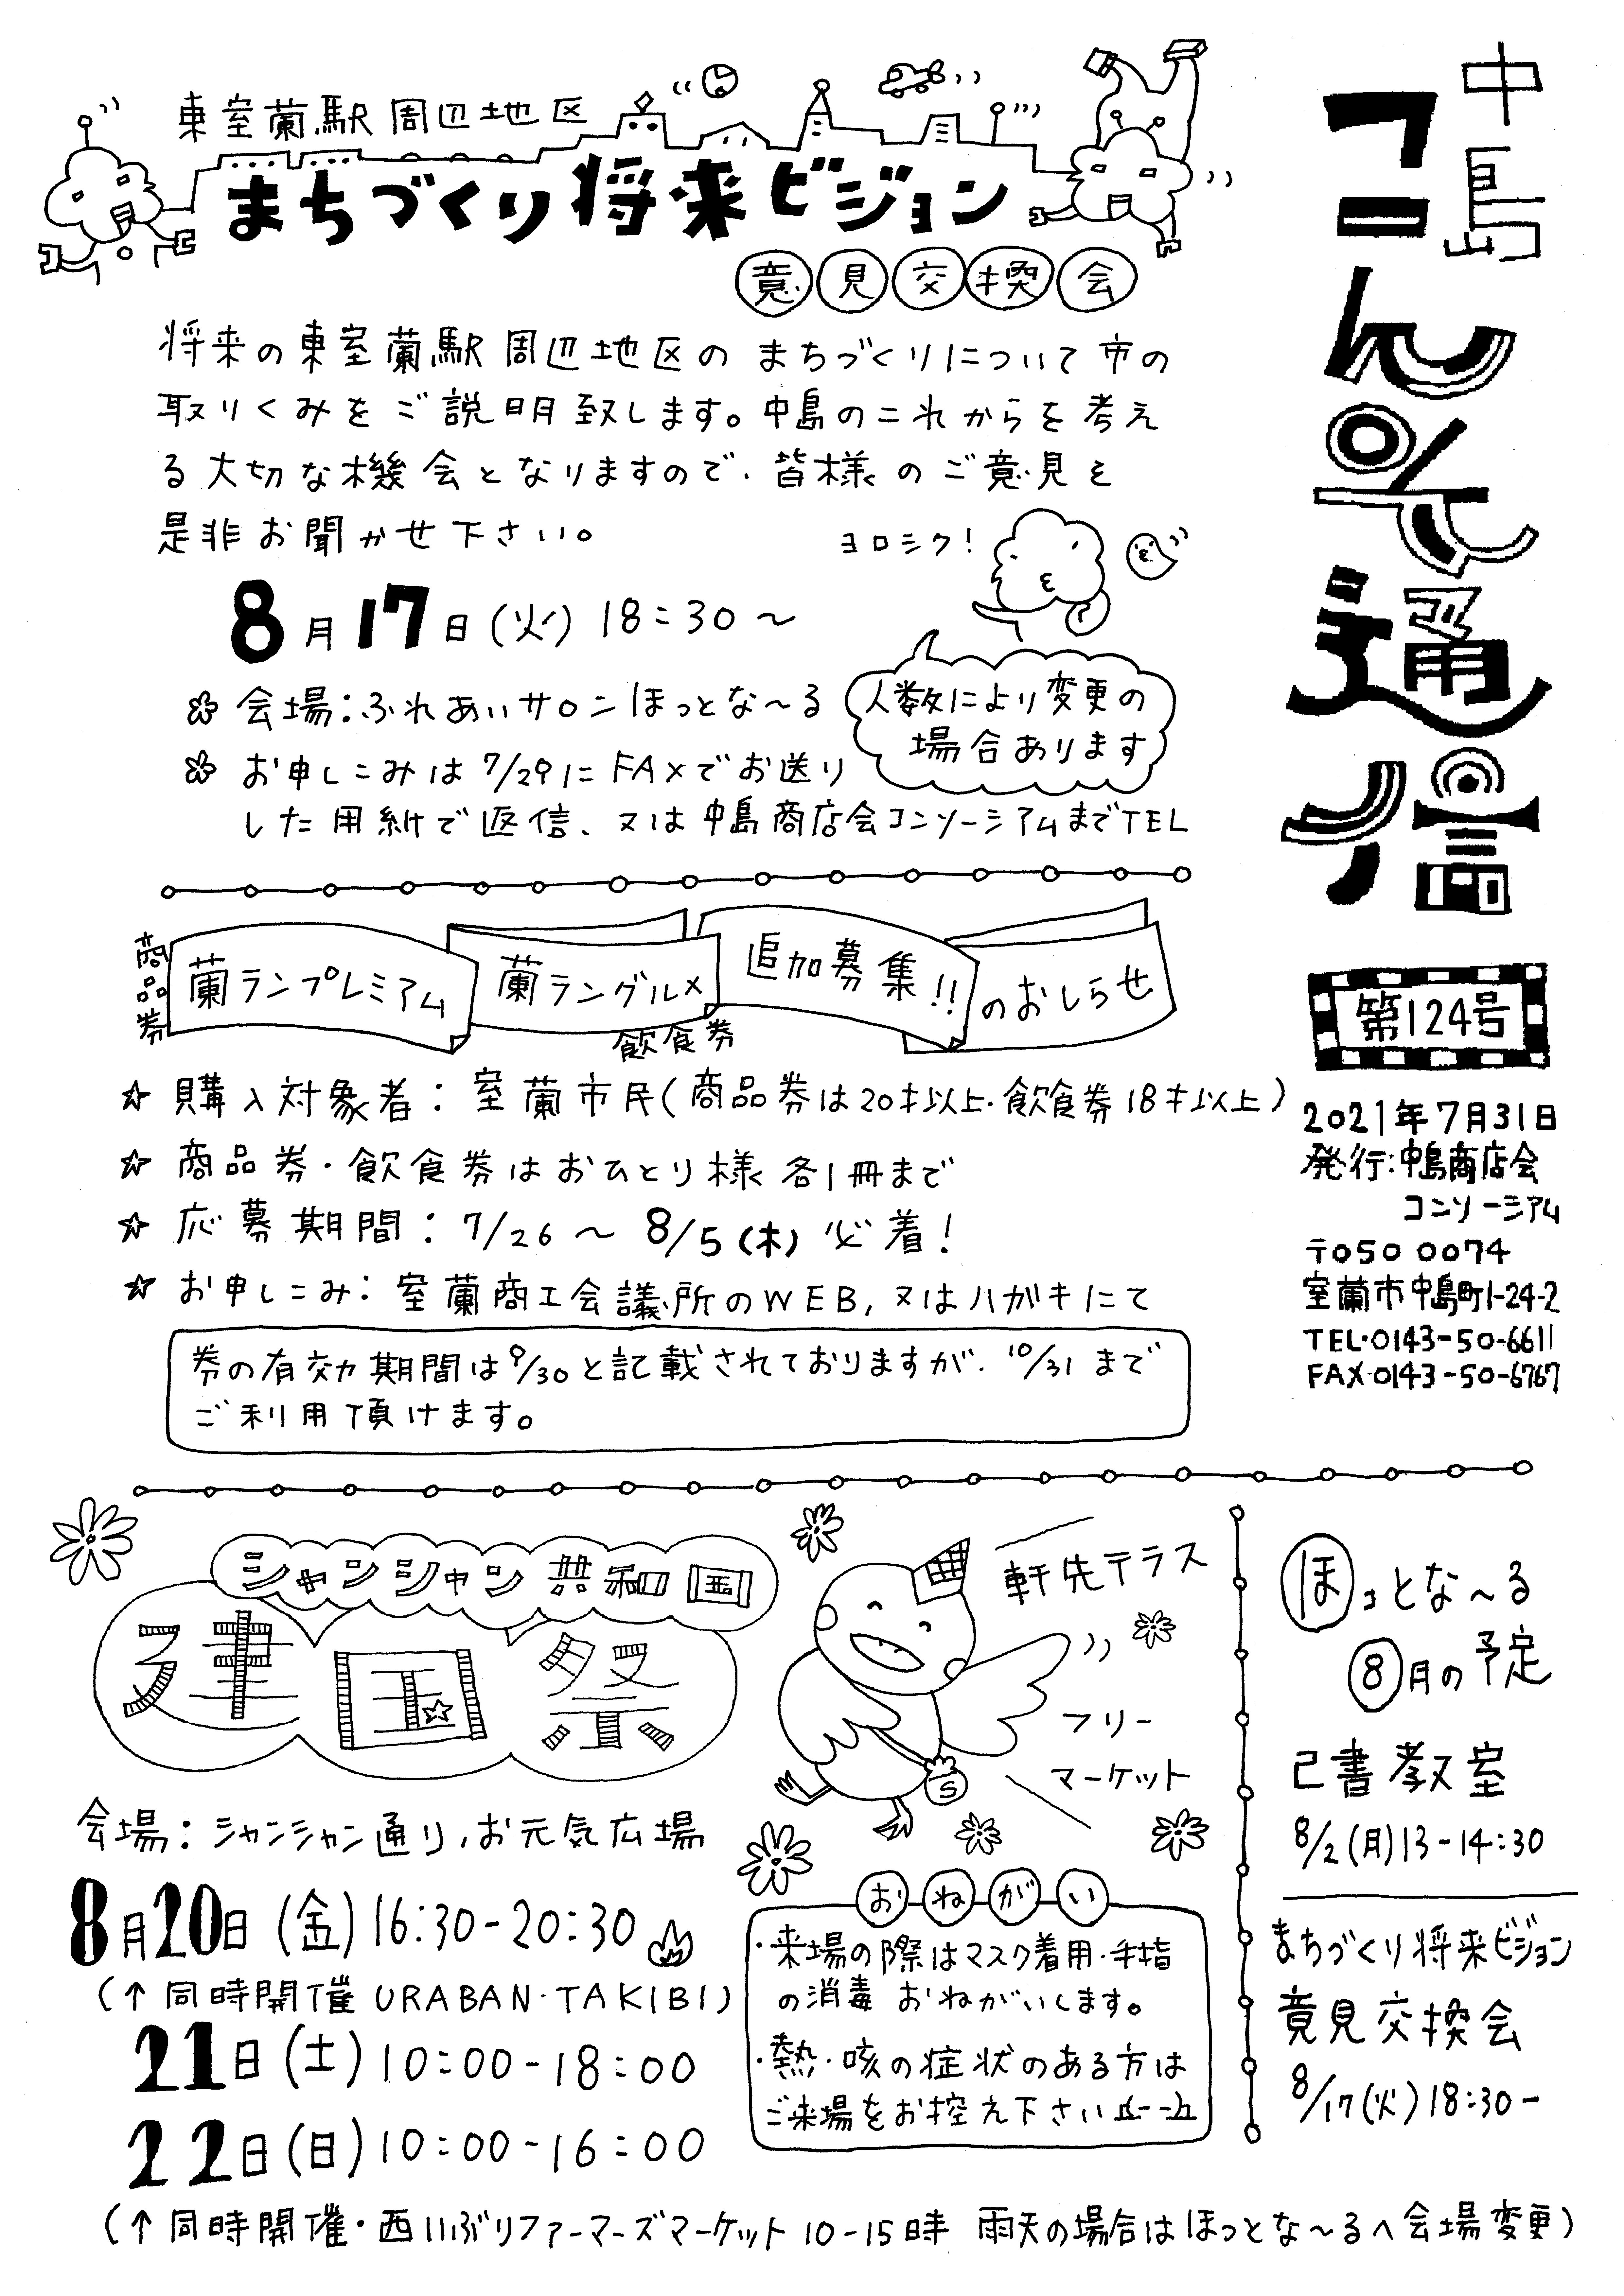 中島
コンそ通信
第124号
2021年7月31日
発行:中島商店会
コンソーシアム
〒050 0074
室蘭市中島町1-24-2
TEL・0143-50-6611
FAX・0143-50-6767
東室蘭駅周辺地区
まちづくり将来ビジョン
意見交換会
将来の東室蘭駅周辺地区のまちづくりについて市の
取りくみをご説明致します。中島のこれからを考え
る大切な機会となりますので、皆様のご意見を
是非お聞かせ下さい。
ヨロシク!
8月17日(火)18:30〜
会場:ふれあいサロンほっとな〜る
人数により変更の
場合あります
お申しこみは7/29にFAXでお送り
した用紙で返信、又は中島商店会コンソーシアムまでTEL
商品券
蘭ランプレミアム
蘭ラングルメ
飲食券
追加募集!!
のおしらせ
☆購入対象者:室蘭市民(商品券は20才以上・飲食券18才以上)
☆商品券・飲食券はおひとり様各1冊まで
☆応募期間:7/26〜8/5(木)必着!
☆お申しこみ:室蘭商工会議所のWEB,又はハガキにて
券の有効期間は9/30と記載されておりますが、10/31まで
ご利用頂けます。
シャンシャン共和国
建国祭
軒先テラス
フリー
マーケット
S
会場:シャンシャン通り,お元気広場
8月20日(金)16:30-20:30
(↑同時開催URABAN・TAKIBI)
21日(土)10:00-18:00
22日(日)10:00-16:00
(↑同時開催・西いぶりファーマーズマーケット10-15時 雨天の場合はほっとな〜るへ会場変更)
おねがい
・来場の際はマスク着用・手指
の消毒おねがいします。
・熱・咳の症状のある方は
ご来場をお控え下さい
ほっとな〜る
8月の予定
己書教室
8/2(月)13-14:30
まちづくり将来ビジョン
意見交換会
8/17(火)18:30-